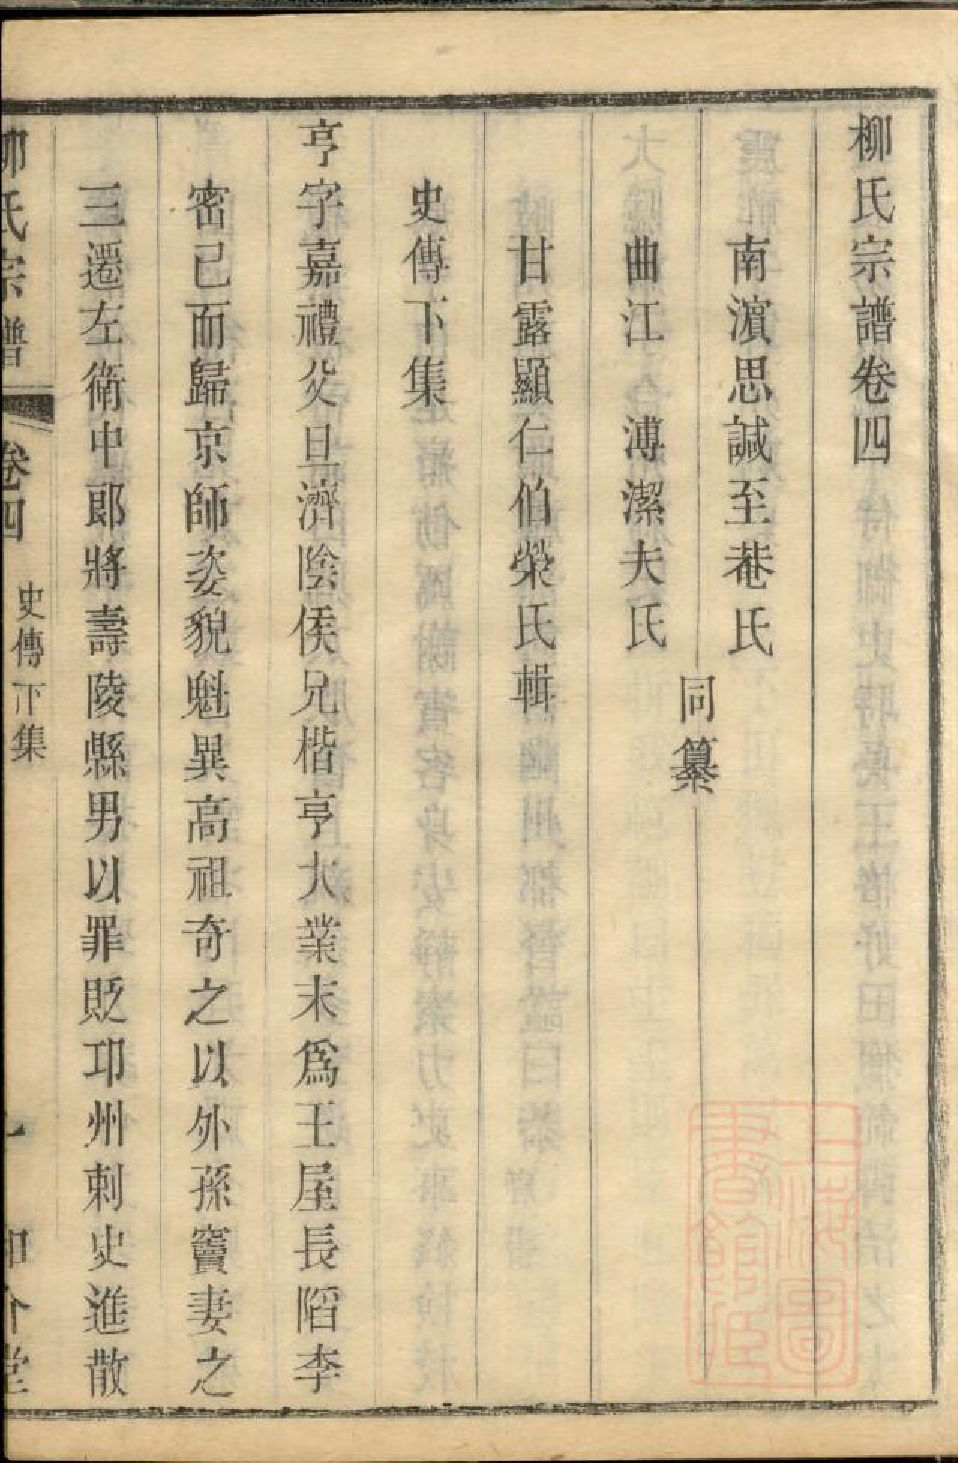 柳氏宗譜卷四
南濵思誠至菴氏
同纂
曲江 溥潔夫氏
甘露顯仁伯榮氏輯
史傳下集
亨字嘉禮父旦濟陰侯兄楷亨大業末爲王屋長陷李
密已而歸京師姿貌魁異高祖奇之以外孫竇妻之
三遷左衛中郎將壽陵縣男以罪貶卭州刺史進散
柳氏宗譜 卷四 史傳下集 一 知介堂
上海圖書館藏